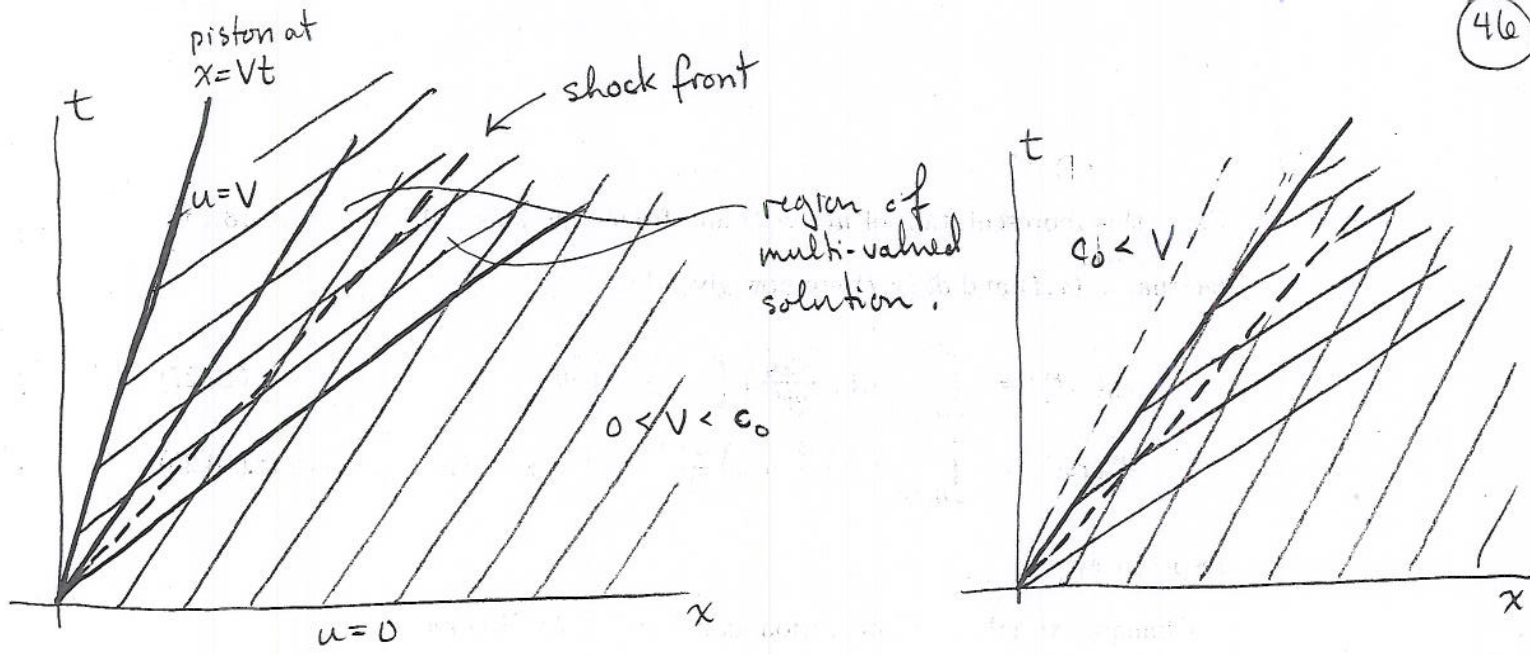 46
piston at
x=Vt
t
shock front
u=V
region of
multi-valued
solution.
0 < V < c₀
x
u=0
t
c₀ < V
x